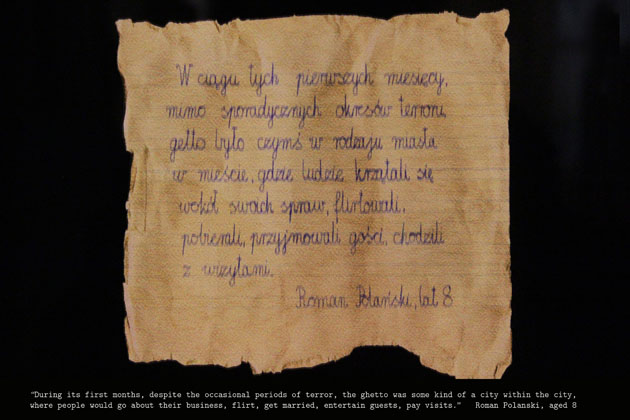 W ciągu tych pierwszych miesięcy,
mimo sporadycznych okresów terroru,
getto było czymś w rodzaju miasta
w mieście, gdzie ludzie krzątali się
wokół swoich spraw, flirtowali,
pobierali, przyjmowali gości, chodzili
z wizytami.
Roman Polański, lat 8
"During its first months, despite the occasional periods of terror, the ghetto was some kind of a city within the city,
where people would go about their business, flirt, get married, entertain guests, pay visits." Roman Polanski, aged 8